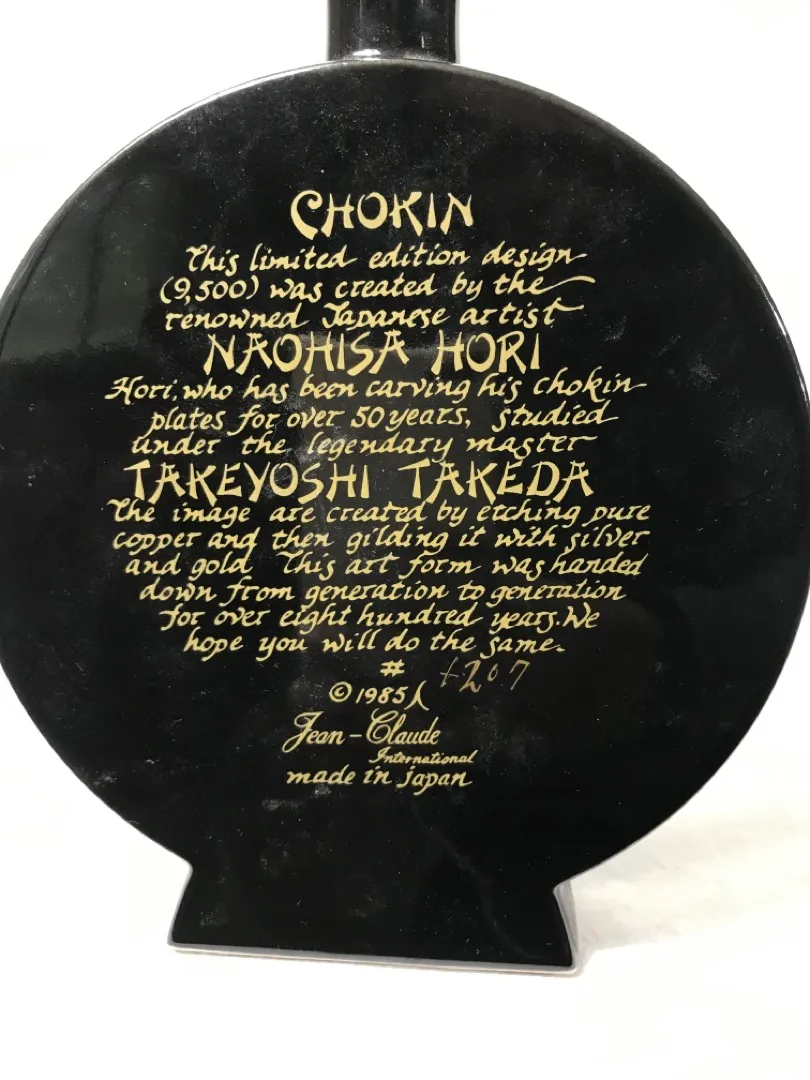 CHOKIN
This limited edition design
(9,500) was created by the
renowned Japanese artist
NAOHISA HORI
Hori, who has been carving his chokin
plates for over 50 years, studied
under the legendary master
TAKEYOSHI TAKEDA
The image are created by etching pure
copper and then gilding it with silver
and gold This art form was handed
down from generation to generation
for over eight hundred years. We
hope you will do the same.
#
© 1985
Jean-Claude
International
made in japan